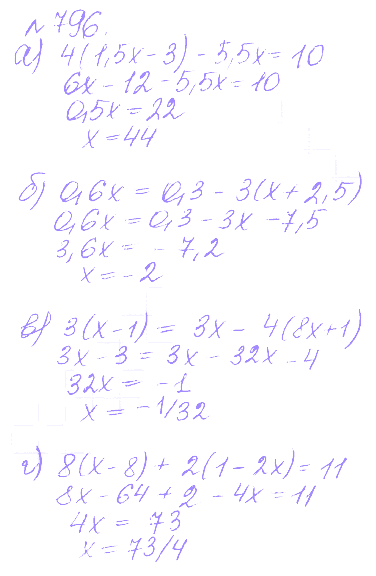 № 796.
а) 4(1,5x - 3) - 5,5x = 10
6x - 12 - 5,5x = 10
0,5x = 22
x = 44
б) 0,6x = 0,3 - 3(x + 2,5)
0,6x = 0,3 - 3x - 7,5
3,6x = - 7,2
x = - 2
в) 3(x - 1) = 3x - 4(8x + 1)
3x - 3 = 3x - 32x - 4
32x = - 1
x = - 1/32
г) 8(x - 8) + 2(1 - 2x) = 11
8x - 64 + 2 - 4x = 11
4x = 73
x = 73/4